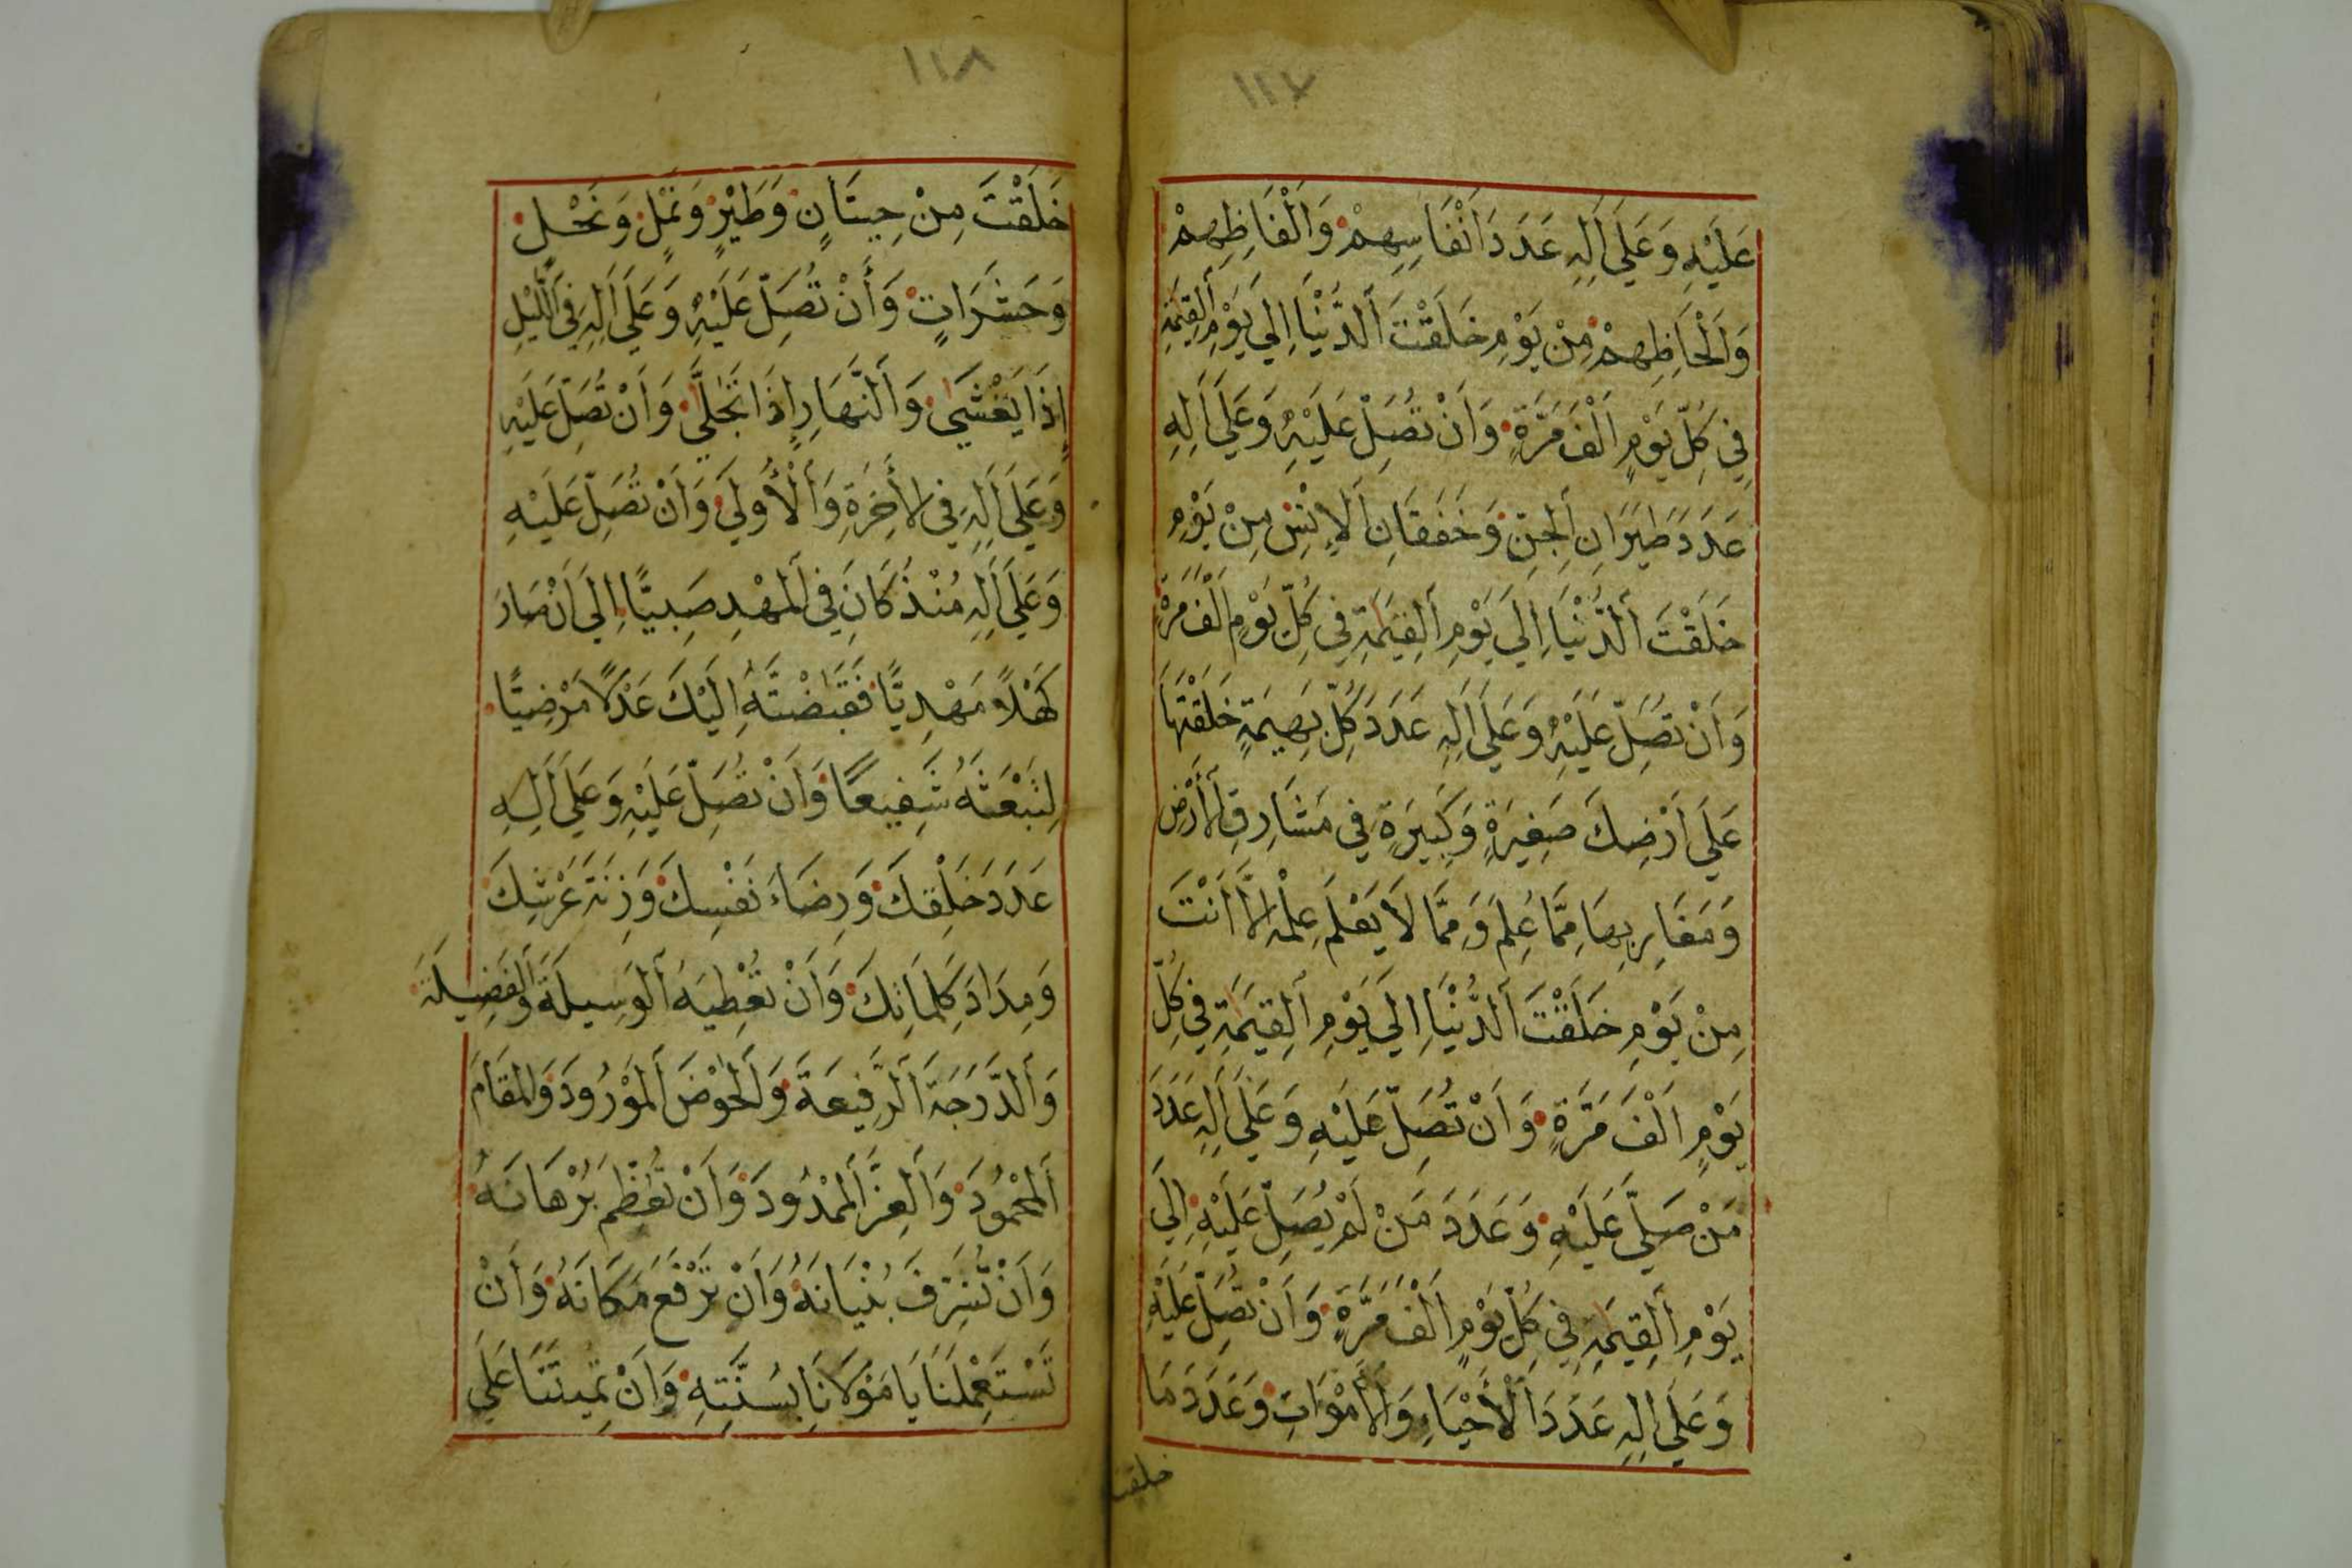 ١١٧
عَلَيْهِ وَعَلَى اَلِهِ عَدَدَ اَنْفَاسِهِمْ وَاَلْفَاظِهِمْ
وَاَلْحَاظِهِمْ مِنْ يَوْمِ خَلَقْتَ اَلدُّنْيَا اِلَي يَوْمِ اَلْقِيَمَةِ
فِي كُلِّ يَوْمٍ اَلْفَ مَرَّةٍ وَاَنْ تُصَلِّ عَلَيْهِ وَعَلَي اَلِهِ
عَدَدَ طَيَرَانِ اَلْجِنِّ وَخَفَقَانِ اَلْاِنْسِ مِنْ يَوْمِ
خَلَقْتَ اَلدُّنْيَا اِلَي يَوْمِ اَلْقِيَمَةِ فِي كُلِّ يَوْمٍ اَلْفَ مَرَّةٍ
وَاَنْ تُصَلِّ عَلَيْهِ وَعَلَي اَلِهِ عَدَدَ كُلِّ بَهِيمَةٍ خَلَقْتَهَا
عَلَي اَرْضِكَ صَغِيَرةٍ وَكَبِيَرةٍ فِي مَشَارِقِ اَلْاَرْضِ
وَمَغَارِبِهَا مِمَّا عُلِمَ وَمِمَّا لَا يَعْلَمُ عِلْمَهُ اِلَّا اَنْتَ
مِنْ يَوْمِ خَلَقْتَ اَلدُّنْيَا اِلَي يَوْمِ اَلْقِيَمَةِ فِي كُلِّ
يَوْمٍ اَلْفَ مَرَّةٍ وَاَنْ تُصَلِّ عَلَيْهِ وَعَلَي اَلِهِ عَدَدَ
مَنْ صَلَّي عَلَيْهِ وَعَدَدَ مَنْ لَمْ يُصَلِّ عَلَيْهِ اِلَي
يَوْمِ اَلْقِيَمَةِ فِي كُلِّ يَوْمٍ اَلْفَ مَرَّةٍ وَاَنْ تُصَلِّ عَلَيْهِ
وَعَلَي اَلِهِ عَدَدَ اَلْاَحْيَاءِ وَالْاَمْوَاتِ وَعَدَدَ مَا
خلقت
١١٨
خَلَقْتَ مِنْ حِيتَانٍ وَطَيْرٍ وَنَمْلٍ وَنَحْلٍ
وَحَشَرَاتٍ وَأَنْ تُصَلِّ عَلَيْهِ وَعَلَي اَلِهِ فِي اَلَّليْلِ
اِذَا يَغْشَي وَاَلنَّهَارِ اِذَا تَجَلَّي وَاَنْ تُصَلِّ عَلَيْهِ
وَعَلَي اَلِهِ فِي الْأَخِرَةِ وَاَلْأُولَي وَاَنْ تُصَلِّ عَلَيْهِ
وَعَلَي اَلِهِ مُنْذُ كَانَ فِي اَلْمَهْدِ صَبِيًّا اِلَي اَنْ صَارَ
كَهْلًا مَهْدِيًّا فَقَبَضْتَهُ اِلَيْكَ عَدْلًا مَرْضِيًّا
لِتَبْعَثَهُ شَفِيعًا وَاَنْ تُصَلِّ عَلَيْهِ وَعَلَي اَلِهِ
عَدَدَ خَلْقِكَ وَرِضَاءَ نَفْسِكَ وَزِنَةَ عَرْشِكَ
وَمِدَادَ كَلِمَاتِكَ وَاَنْ تُعْطِيَهُ اَلْوَسِيلَةَ وَاَلْفَضِيلَةَ
وَاَلدَّرَجَةَ اَلرَّفِيعَةَ وَاَلْحَوْضَ اَلْمَوْرُودَ وَالْمَقَامَ
اَلْمَحْمُودَ وَاَلْعِزَّ اَلْمَمْدُودَ وَاَنْ تُعَظِّمَ بُرْهَانَهُ
وَاَنْ تُشَرِّفَ بُنْيَانَهُ وَاَنْ تَرْفَعَ مَكَانَهُ وَاَنْ
تَسْتَعْمِلَنَا يَا مَوْلَانَا بِسُنَّتِهِ وَاَنْ تُمِيتَنَا عَلَي